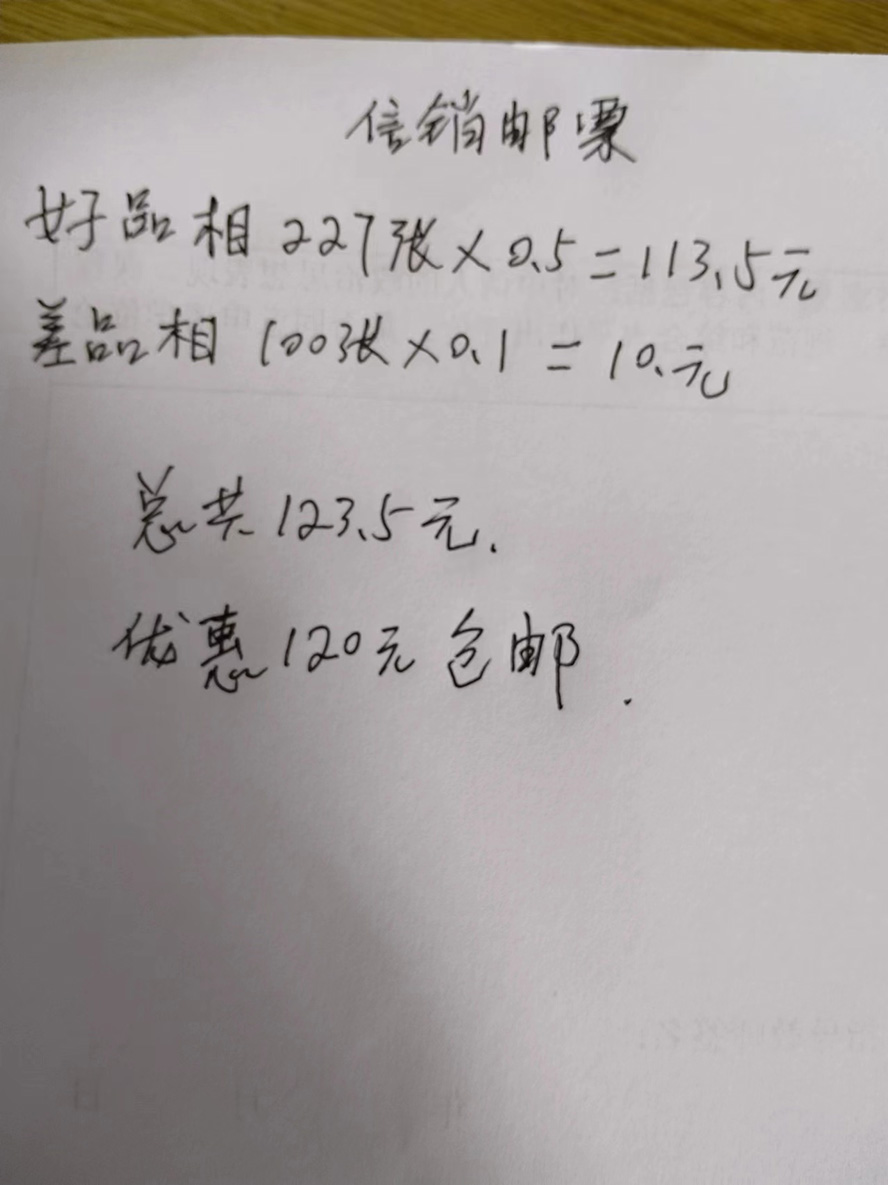 信销邮票
好品相 227张×0.5=113.5元
差品相 100张×0.1=10.元
总共123.5元.
优惠120元包邮.